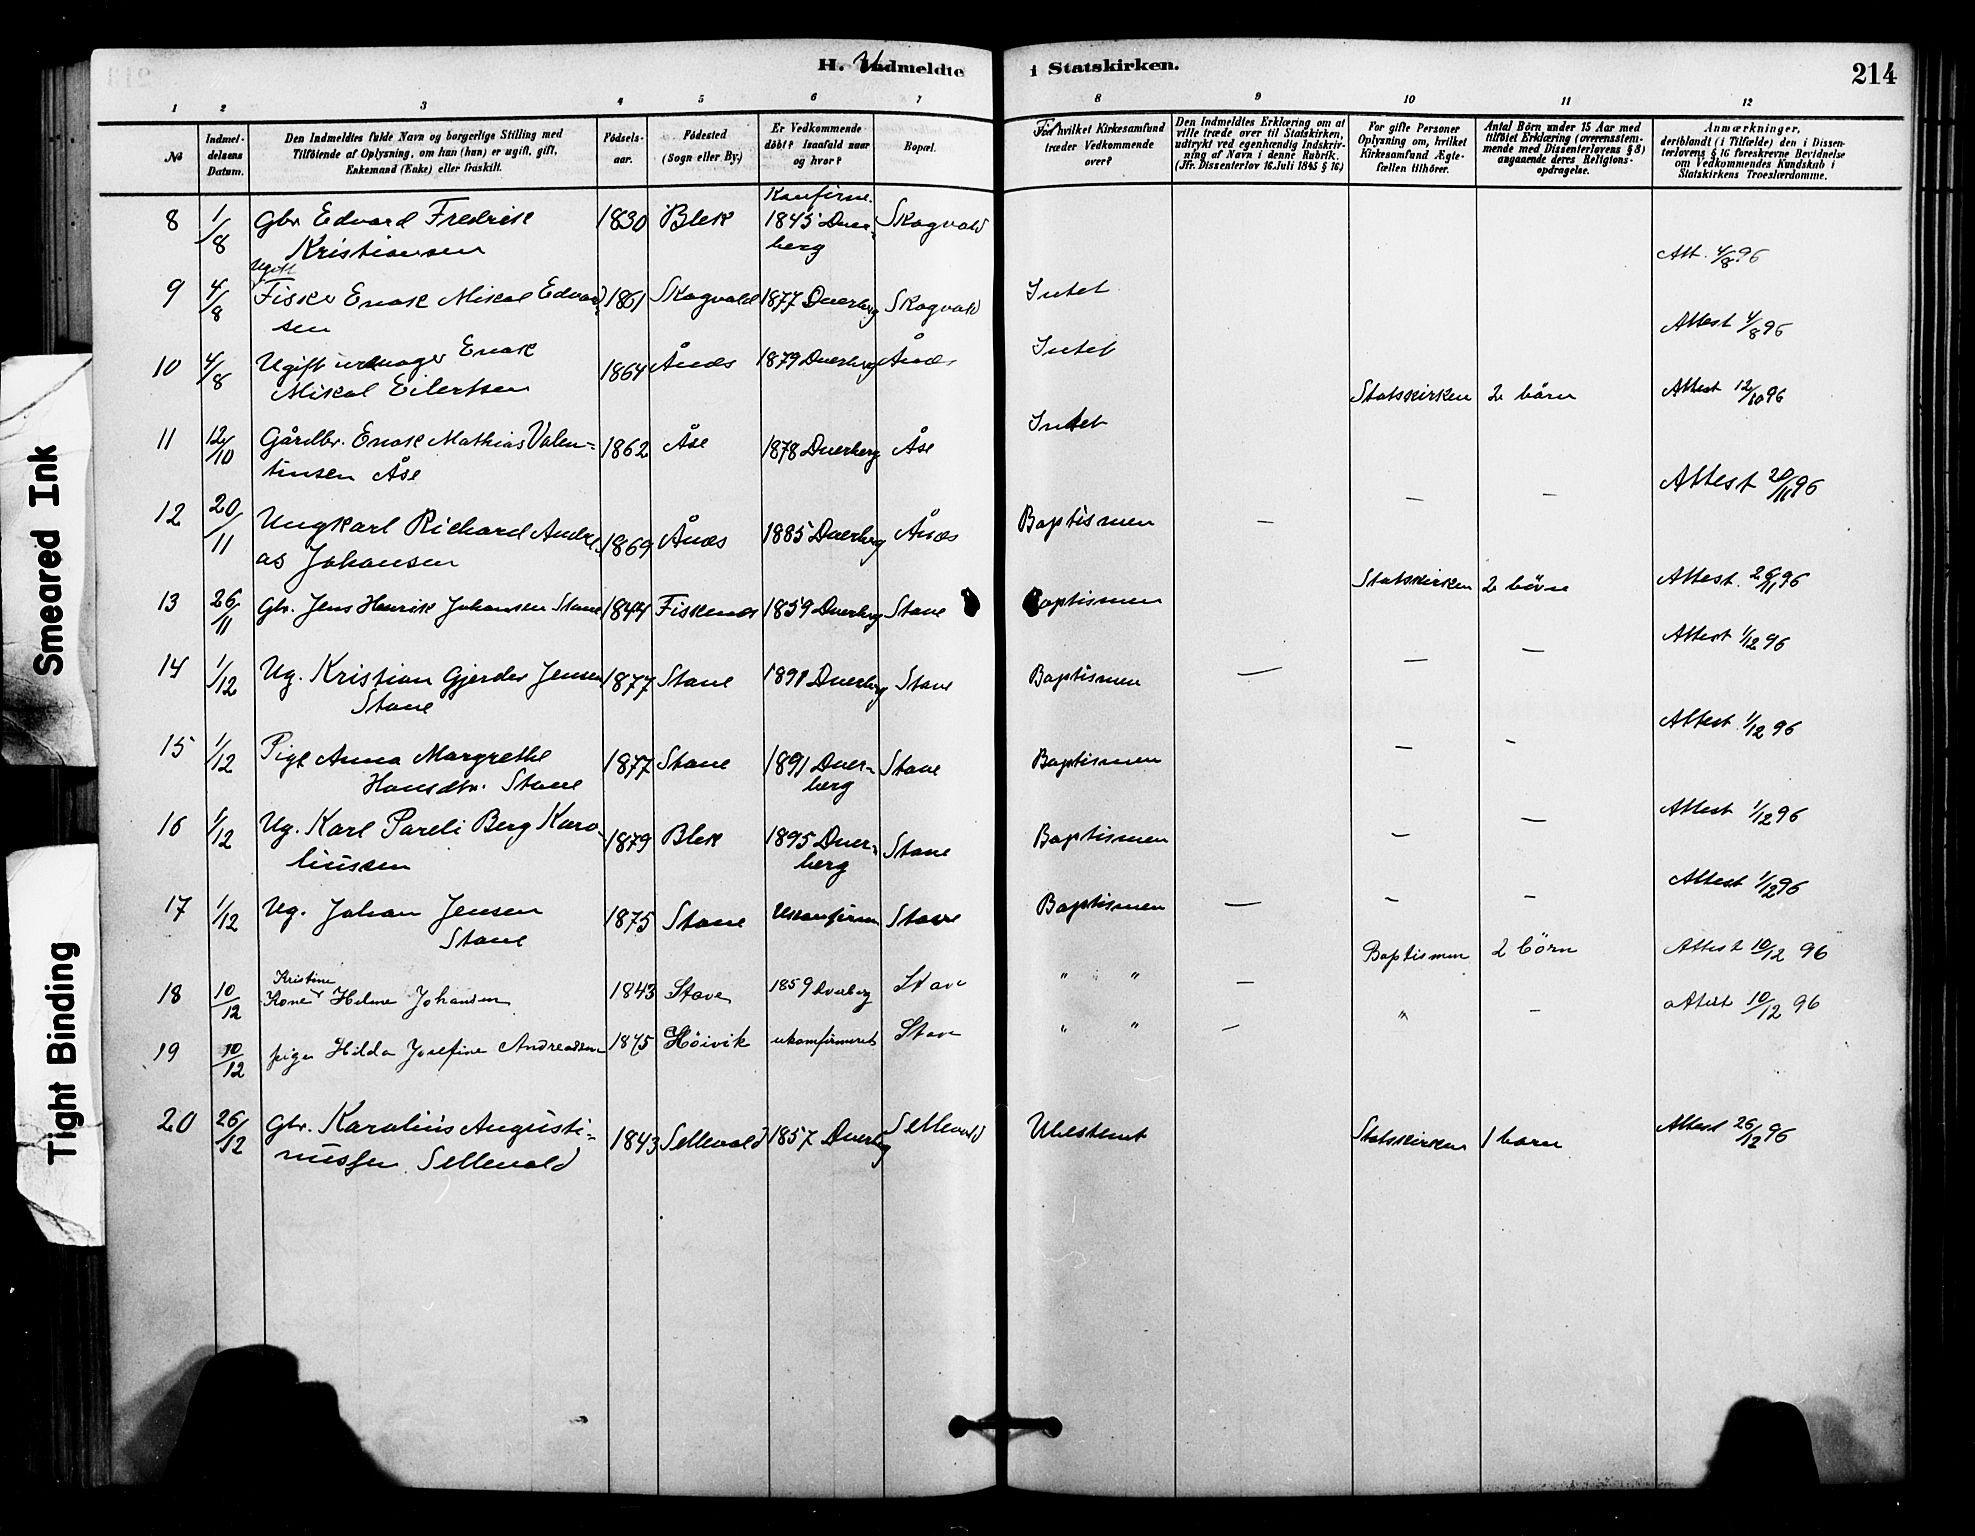 H. Udmeldte i Statskirken.
214
1 2 3 4 5 6 7 8 9 10 11 12
No
Indmel-
delsens
Datum.
Den Indmeldtes fulde Navn og borgerlige Stilling med
Tilföiende af Oplysning, om han (hun) er ugift, gift,
Enkemand (Enke) eller fraskilt.
Födsels-
aar.
Födested
(Sogn eller By.)
Er Vedkommende
döbt? Isaafald naar
og hvor?
Bopæl.
Til hvilket Kirkesamfund
træder Vedkommende
over?
Den Indmeldtes Erklæring om at
ville træde over til Statskirken,
udtrykt ved egenhændig Indskriv-
ning af Navn i denne Rubrik.
(Jfr. Dissenterlov 16. Juli 1845 § 16.)
For gifte Personer
Oplysning om, hvilket
Kirkesamfund Ægte-
fællen tilhörer.
Antal Börn under 15 Aar med
tilföiet Erklæring (overensstem-
mende med Dissenterlovens § 8)
angaaende deres Religions-
opdragelse.
Anmærkninger,
deriblandt (i Tilfælde) den i Dissen-
terlovens § 16 foreskrevne Bevidnelse
om Vedkommendes Kundskab i
Statskirkens Troeslærdomme.
Konfirm.
8 1/8 Gbr. Edvard Fredrik 1830 Blek 1845 Dver- Skogvold
Kristiansen berg
Att. 4/8 96
Ugift
9 4/8 Fisker Enok Mikal Edvard- 1861 Skogvold 1877 Dverberg Skogvold Intet
sen
Attest 4/8 96
10 4/8 Ugift Enok 1864 Ånes 1879 Dverberg Ånes Intet
Mikal Eilertsen
Statskirken 2 börn Attest 12/10 96
11 12/10 Gårdbr. Enok Mathias Valen- 1862 Åse 1878 Dverberg Åse Intet
tinsen Åse
— — Attest 20/11 96
12 20/11 Ungkarl Richard Andre- 1869 Ånes 1885 Dverberg Ånes Baptismen —
as Johansen
Statskirken 2 börn Attest. 26/11 96
13 26/11 Gbr. Jens Henrik Johansen Stave 1844 Fiskenes 1859 Dverberg Stave Baptismen
— — Attest 1/12 96
14 1/12 Ug. Kristian Gjerder Jensen 1877 Stave 1891 Dverberg Stave Baptismen —
Stave
— — Attest 1/12 96
15 1/12 Pige Anna Margrethe 1877 Stave 1891 Dver- Stave Baptismen
Hansdtr. Stave berg
— — Attest 1/12 96
16 1/12 Ug. Karl Pareli Berg Karo- 1879 Blek 1895 Dver- Stave Baptismen
liussen berg
— — Attest 1/12 96
17 1/12 Ug. Johan Jensen 1875 Stave Ukonfirm Stave Baptismen —
Stave
Baptismen 2 börn Attest 10/12 96
Kristine
18 10/12 Kone Helme Johansen 1843 Stave 1859 Dverberg Stave " " —
" — Attest 10/12 96
19 10/12 pige Hilda Josefine Andreassen 1875 Höivik ukonfirmeret Stave " " —
20 26/12 Gbr. Karolius Augusti- 1843 Sellevold 1857 Dverberg Sellevold Ubestemt Statskirken 1 barn Attest 26/12 96
nussen Sellevold
Smeared Ink
Tight Binding